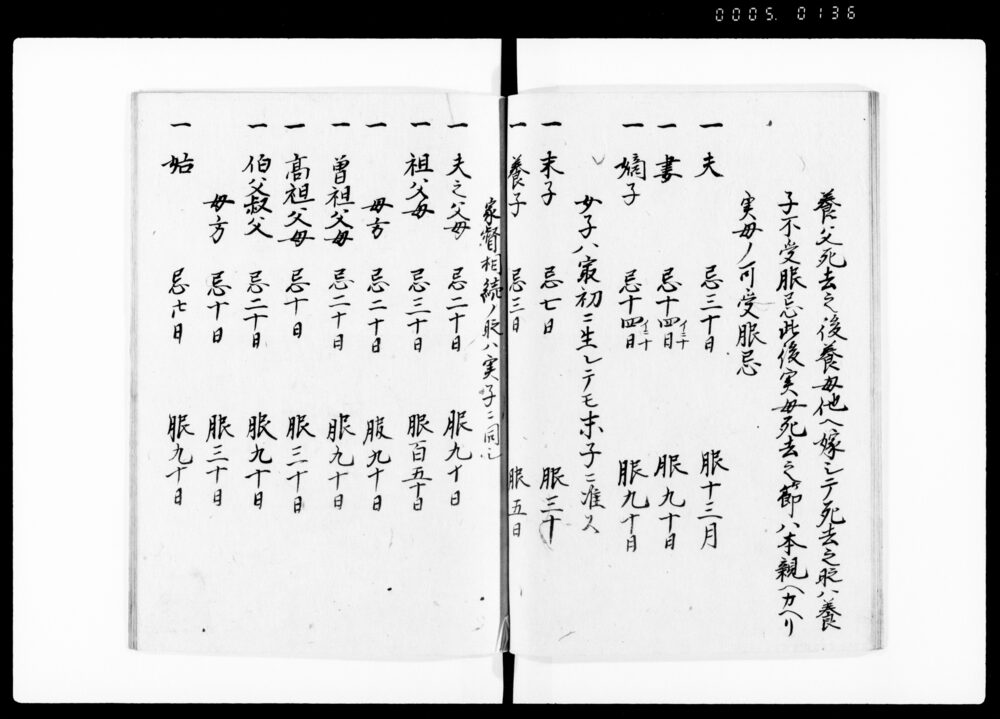 0005. 0136
養父死去之後養母他ヘ嫁シテ死去之昵ハ養
子不受服忌此後実母死去之節ハ本親ヘカヘリ
実母ノ可受服忌
一 夫 忌三十日 服十三月
一 妻 忌十四日 イ二十 服九十日
一 嫡子 忌十四日 イ二十 服九十日
女子ハ最初ニ生レテモ末子ニ准ス
一 末子 忌七日 服三十
一 養子 忌三日 服五日
家督相続ノ昵ハ実子ニ同シ
一 夫之父母 忌二十日 服九十日
一 祖父母 忌三十日 服百五十日
一 母方 忌二十日 腹九十日
一 曽祖父母 忌二十日 服九十日
一 高祖父母 忌十日 服三十日
一 伯父叔父 忌二十日 服九十日
母方 忌十日 服三十日
一 始 忌 日 服九十日